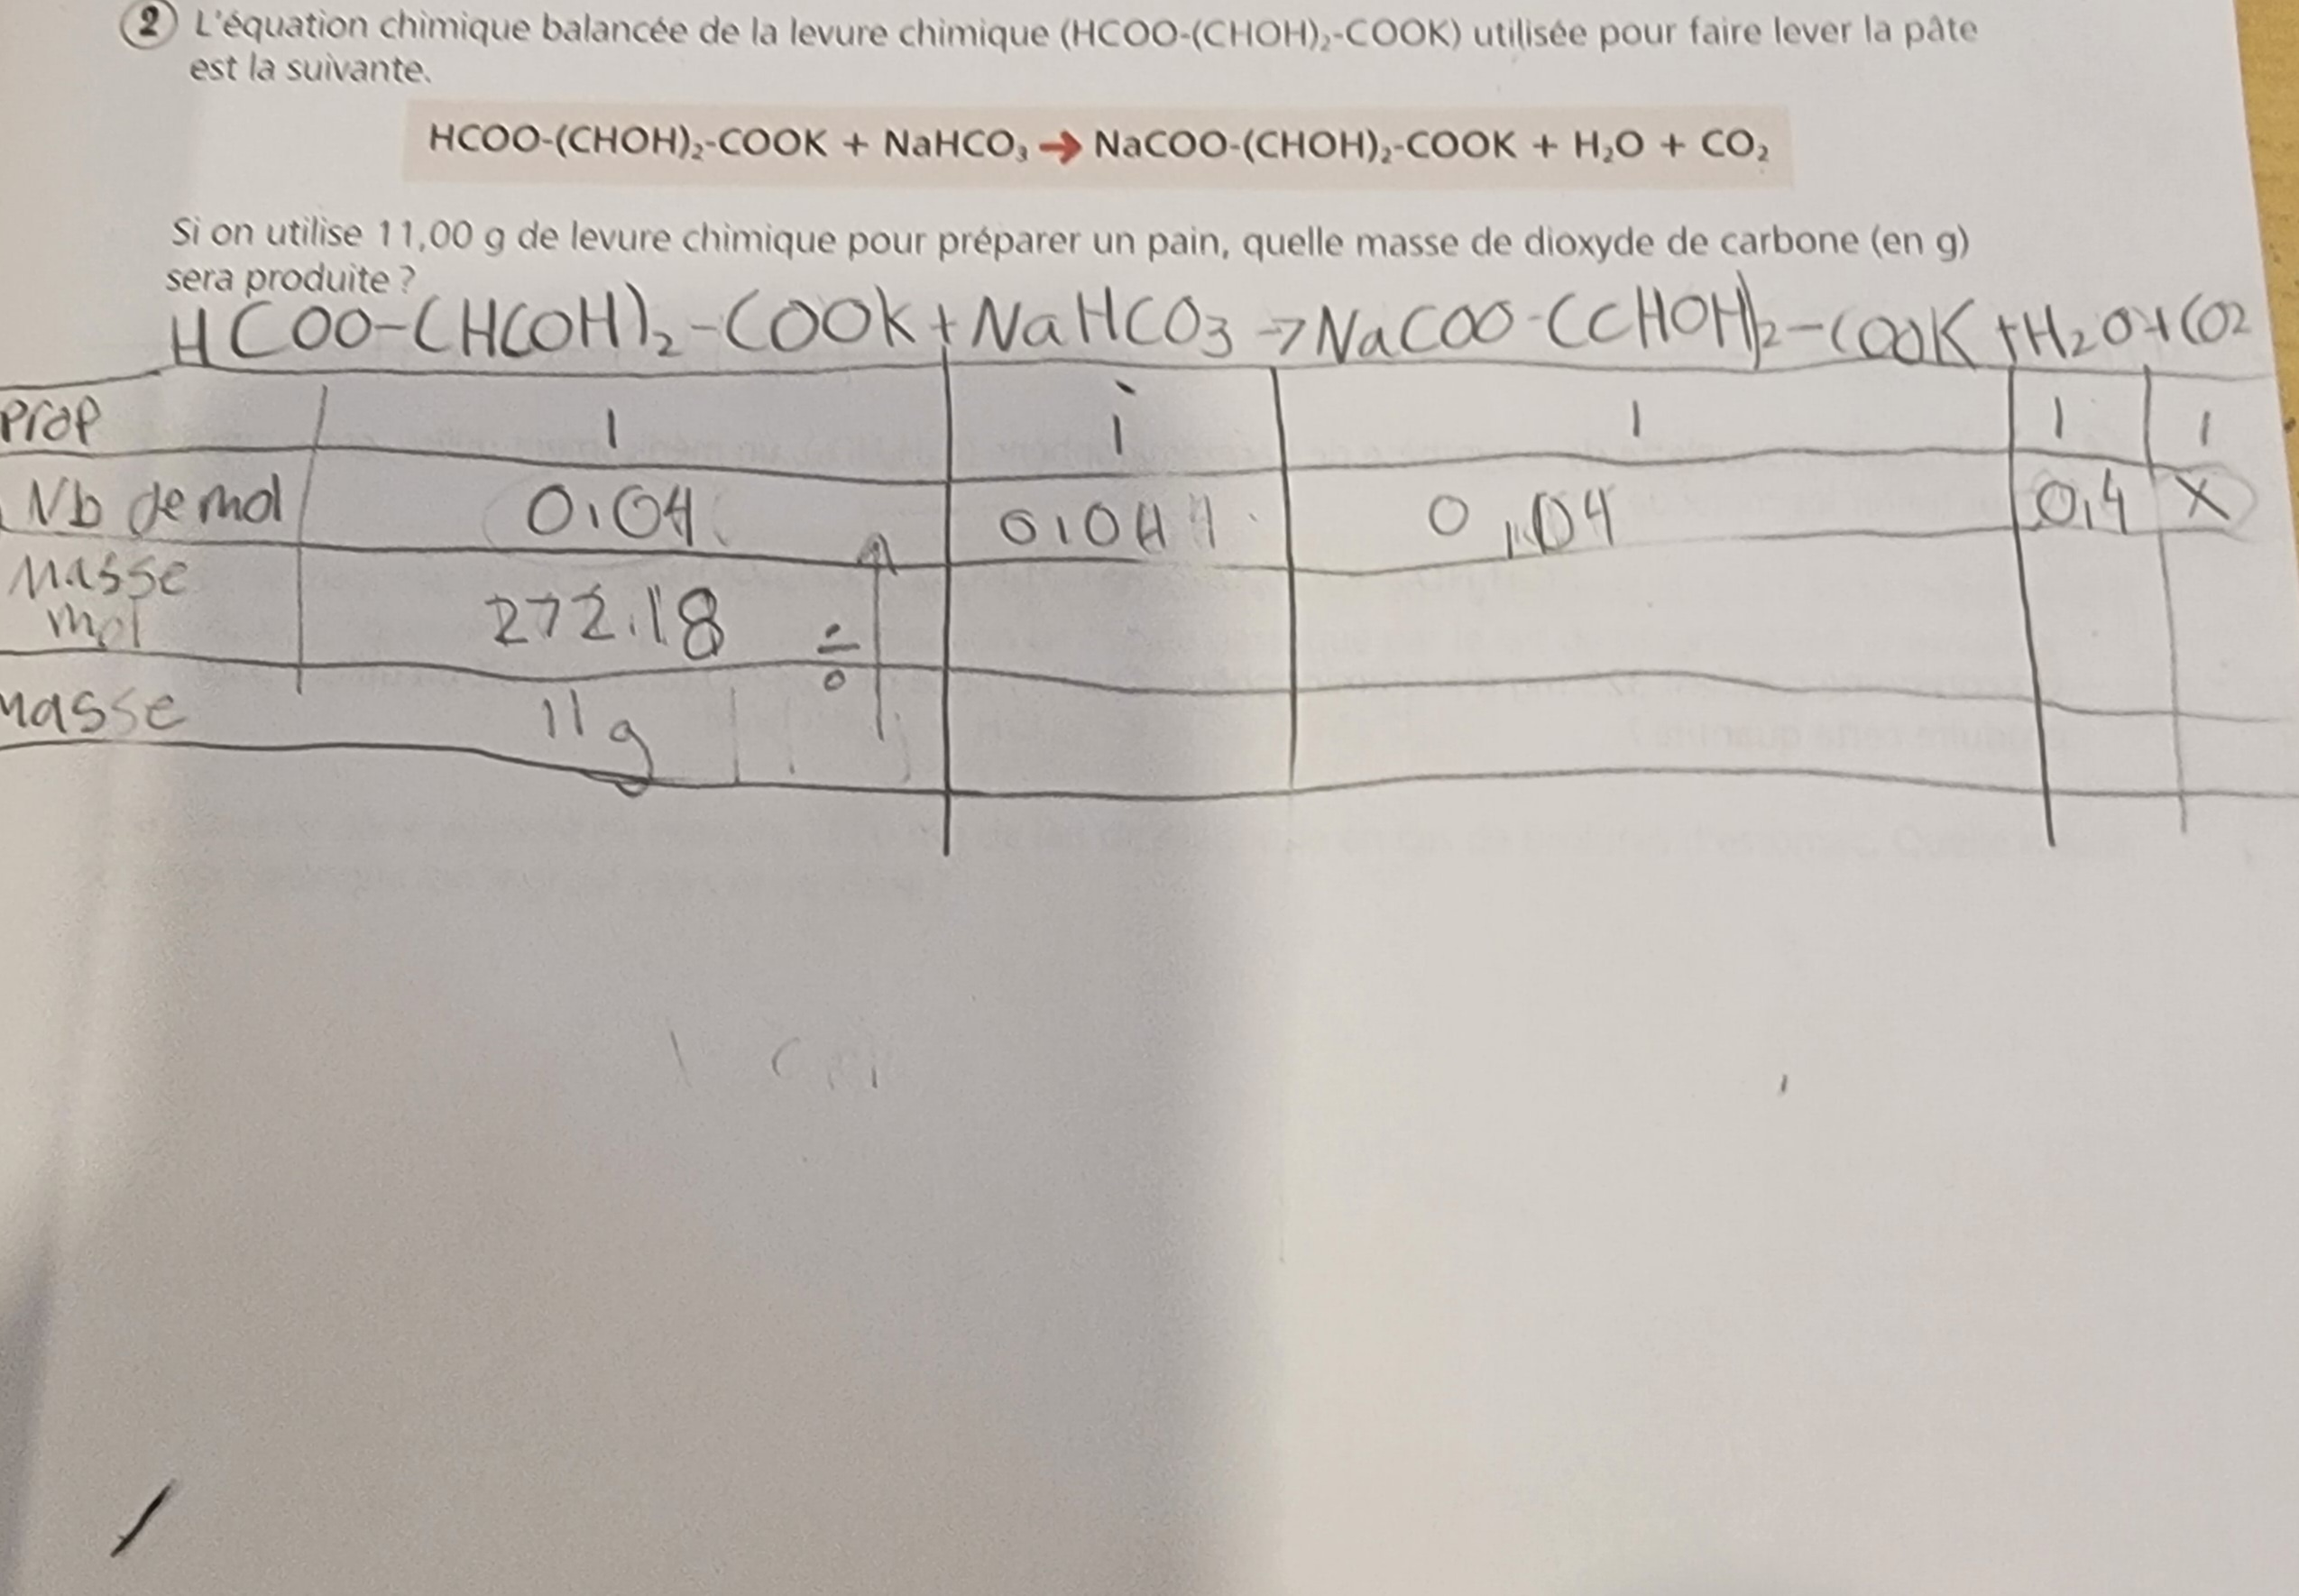 2 L'équation chimique balancée de la levure chimique (HCOO-(CHOH)₂-COOK) utilisée pour faire lever la pâte
est la suivante.
HCOO-(CHOH)₂-COOK + NaHCO₃ → NaCOO-(CHOH)₂-COOK + H₂O + CO₂
Si on utilise 11,00 g de levure chimique pour préparer un pain, quelle masse de dioxyde de carbone (en g)
sera produite ?
HCOO-(HCOH)₂-COOK + NaHCO₃ → NaCOO-(CHOH)₂-COOK + H₂O + CO₂
Prop 1 1 1 1 1
Nb de mol 0,04 0,04 0,04 0,4 X
Masse
mol 272.18 ÷
Masse 11g